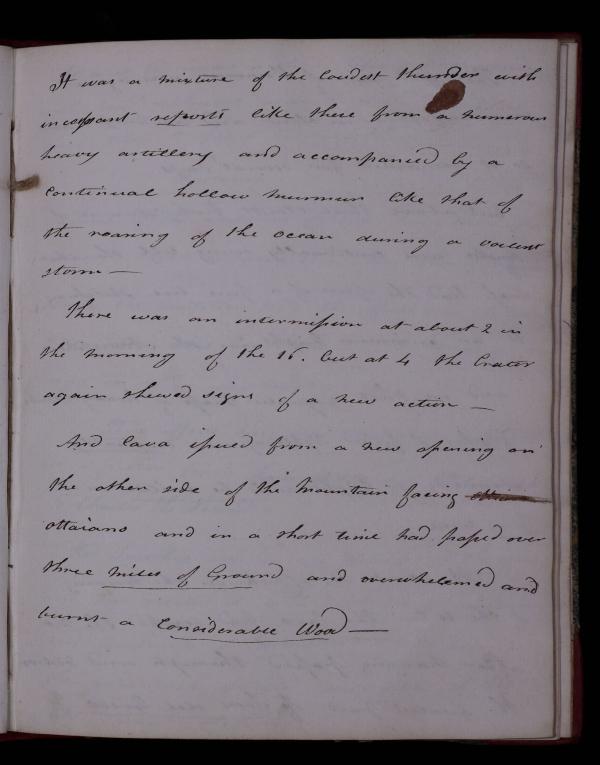 It was a mixture of the loudest thunder with
incessant reports like those from a numerous
heavy artillery and accompanied by a
continual hollow murmur like that of
the roaring of the ocean during a voilent
storm —
There was an intermission at about 2 in
the morning of the 16. but at 4 the Crater
again shewed signs of a new action —
And Lava issued from a new opening on
the other side of the Mountain facing
ottaiano and in a short time had passed over
three miles of Ground and overwhelemed and
burnt a Considerable Wood —